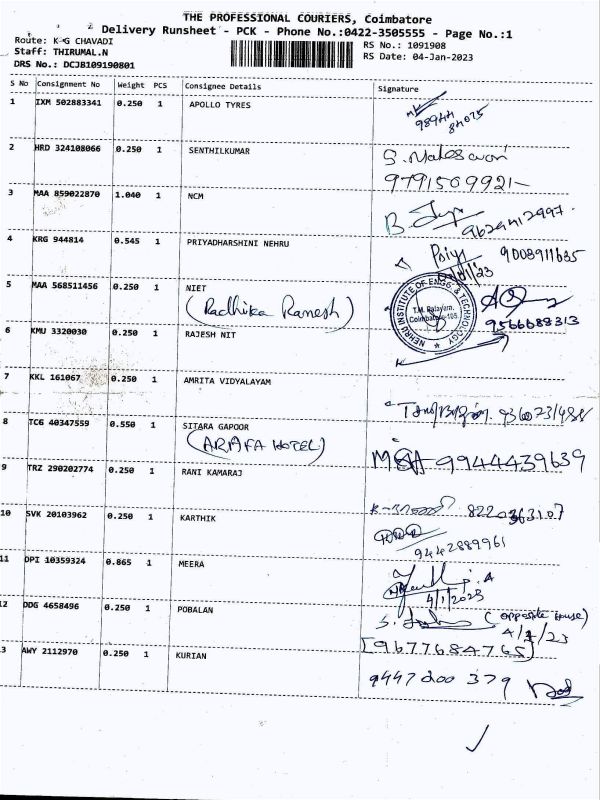 THE PROFESSIONAL COURIERS, Coimbatore
Delivery Runsheet - PCK - Phone No.:0422-3505555 - Page No.:1
Route: K G CHAVADI
Staff: THIRUMAL.N
DRS No.: DCJB109190801
RS No.: 1091908
RS Date: 04-Jan-2023
S No Consignment No Weight PCS Consignee Details Signature
1 IXM 502883341 0.250 1 APOLLO TYRES
98944
84075
2 HRD 324108066 0.250 1 SENTHILKUMAR
9791509921
3 MAA 859022870 1.040 1 NCM
9629412997
4 KRG 944814 0.545 1 PRIYADHARSHINI NEHRU
Priya 9008911635
5 MAA 568511456 0.250 1 NIET
(Radhika Ramesh)
NEHRU INSTITUTE OF ENGG. & TECHNOLOGY
T.M. Palayam,
Coimbatore-105
9566688313
6 KMU 3320030 0.250 1 RAJESH NIT
7 KKL 161067 0.250 1 AMRITA VIDYALAYAM
8 TCG 40347559 0.550 1 SITARA GAPOOR
(ARAFA HOTEL)
9944439639
9 TRZ 290202774 0.250 1 RANI KAMARAJ
10 SVK 20103962 0.250 1 KARTHIK
9442889961
11 DPI 10359324 0.865 1 MEERA
4/1/2023
12 DDG 4658496 0.250 1 POBALAN
(opposite house)
4/1/23
[9677684765]
3 AWY 2112970 0.250 1 KURIAN
9447200 379